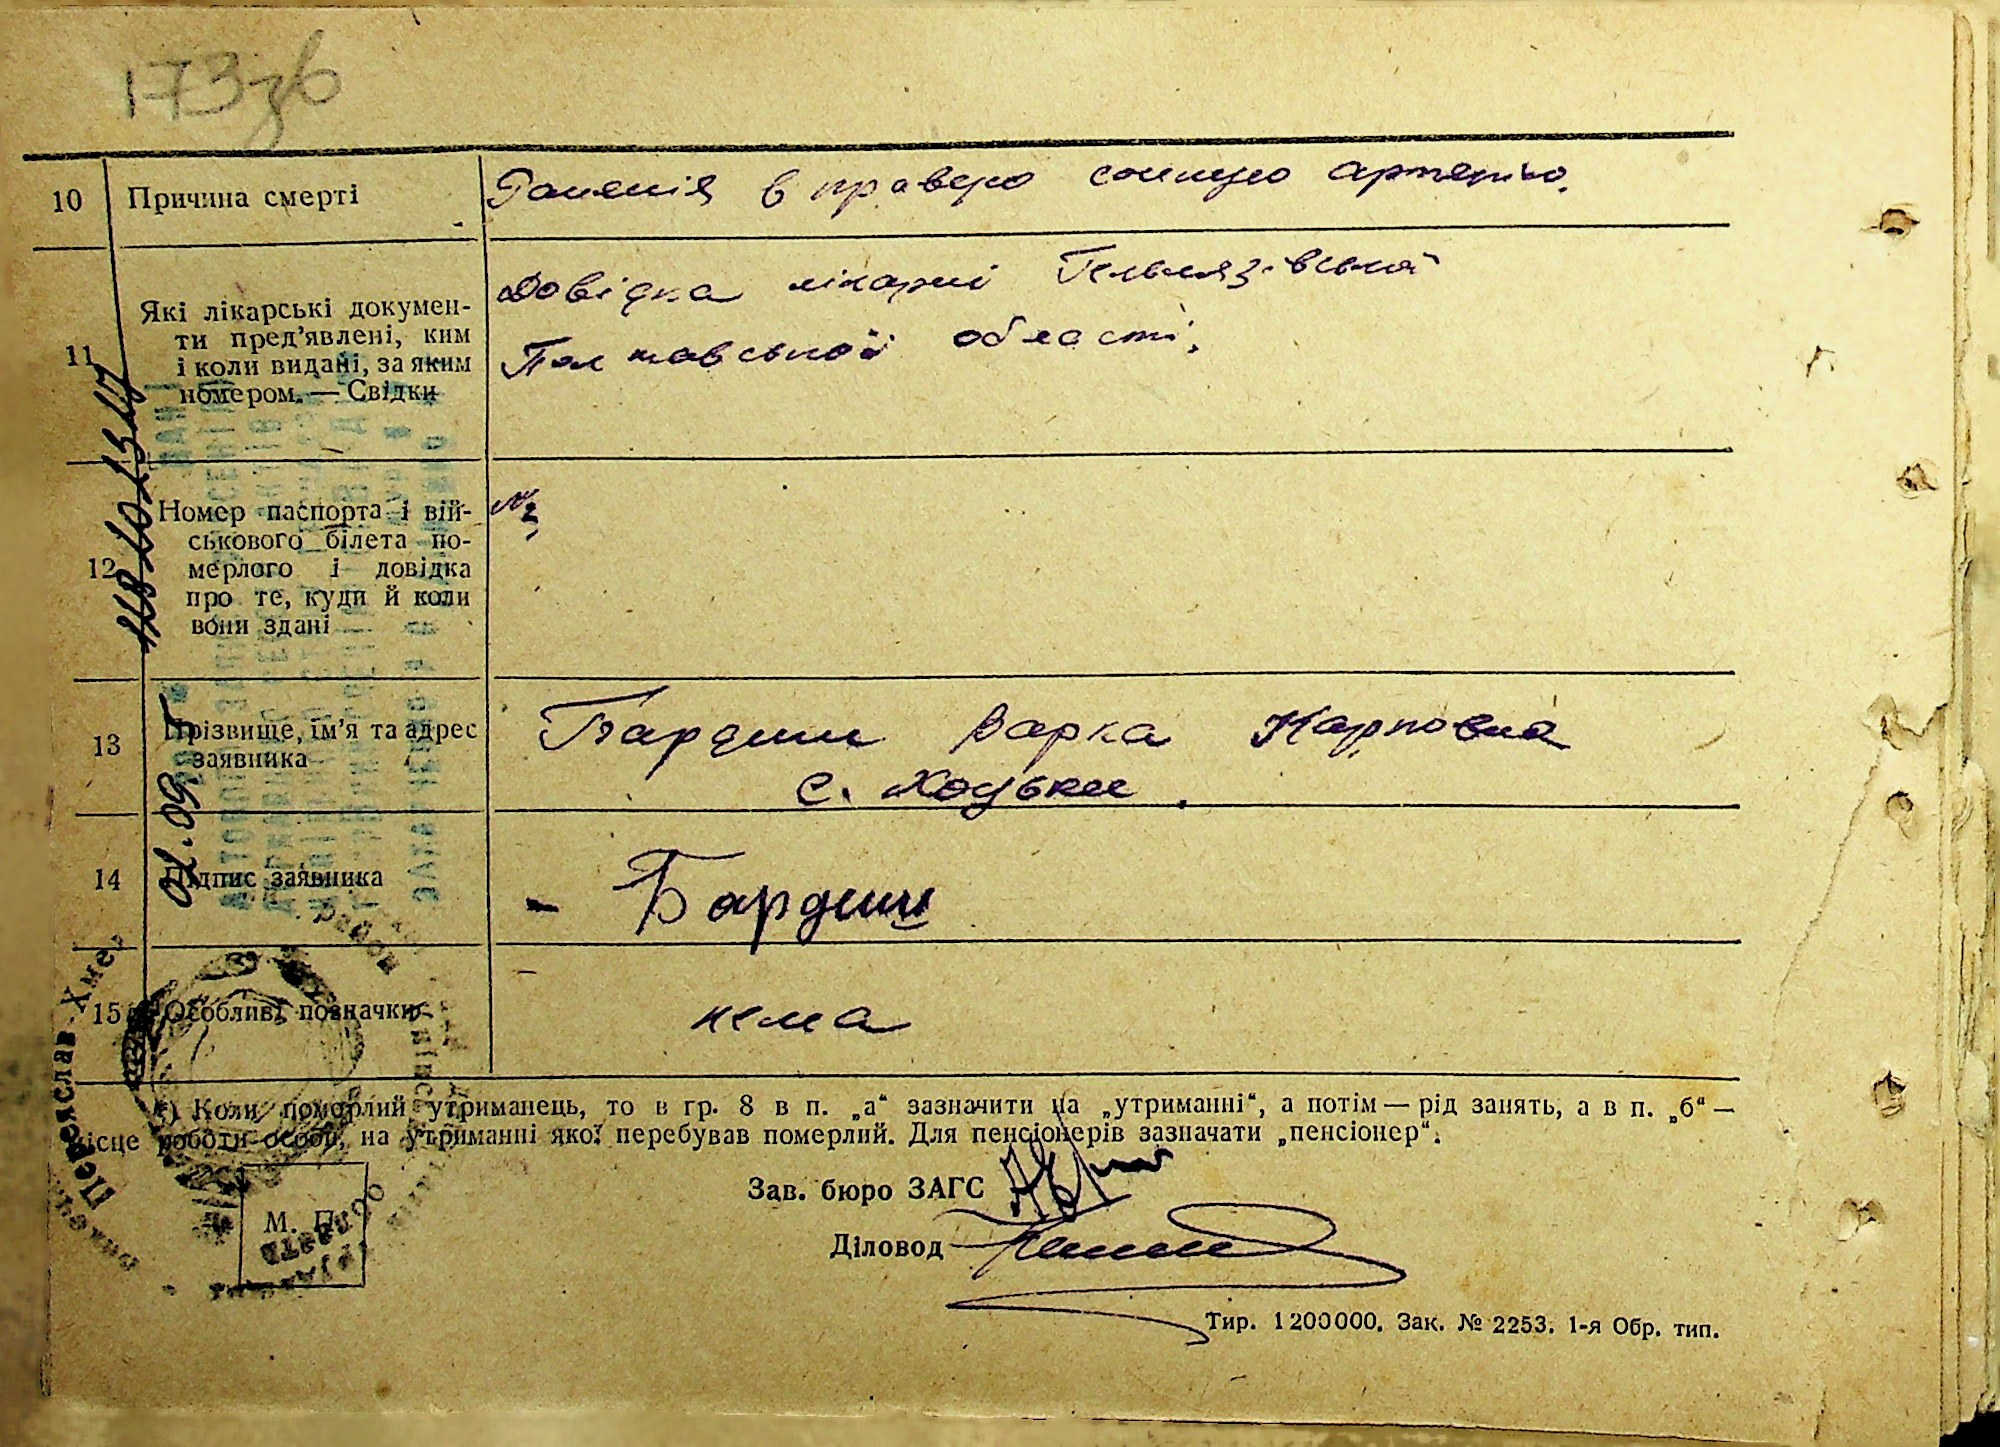 173зв
10 Причина смерті
Раненія в праверо сонную артерію.
11 Які лікарські докумен-
ти пред'явлені, ким
і коли видані, за яким
номером. — Свідки
Довідка лікарні Гельмязівської
Полтавської області.
12 Номер паспорта і вій-
ськового білета по-
мерлого і довідка
про те, куди й коли
вони здані
№
13 Прізвище, ім'я та адрес
заявника
Бардиш Варка Карповна
с. Хоцьки.
14 Підпис заявника
- Бардиш
15 Особливі позначки
нема
*) Коли померлий утриманець, то в гр. 8 в п. „а“ зазначити на „утриманні“, а потім — рід занять, а в п. „б“ —
місце роботи особи, на утриманні якої перебував померлий. Для пенсіонерів зазначати „пенсіонер“.
Зав. бюро ЗАГС
М. П.
Діловод
Тир. 1200000. Зак. № 2253. 1-я Обр. тип.
Переяслав-Хме